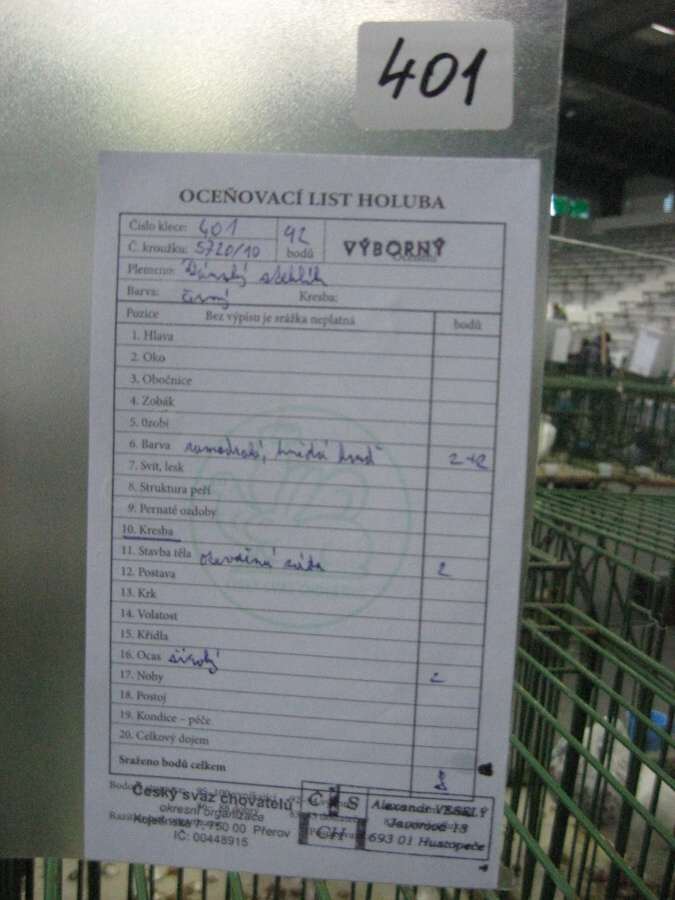 401
OCEŇOVACÍ LIST HOLUBA
Číslo klece: 401
92
bodů
VÝBORNÝ
Č. kroužku: 5720/10
Plemeno: Dánský stehlík
Barva: černý Kresba:
Pozice Bez výpisu je srážka neplatná bodů
1. Hlava
2. Oko
3. Obočnice
4. Zobák
5. Ozobí
6. Barva hnědá 2+2
7. Svit, lesk
8. Struktura peří
9. Pernaté ozdoby
10. Kresba
11. Stavba těla 2
12. Postava
13. Krk
14. Volatost
15. Křídla
16. Ocas široký
17. Nohy 2
18. Postoj
19. Kondice – péče
20. Celkový dojem
Sraženo bodů celkem 8
Český svaz chovatelů
okresní organizace
7, 750 00 Přerov
IČ: 00448915
Č S
CH
Alexandr VESELÝ
Javorová 13
693 01 Hustopeče